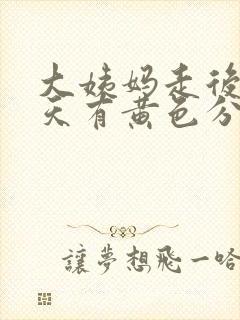 大姨妈走後
天有黄色分
讓夢想飛一哈